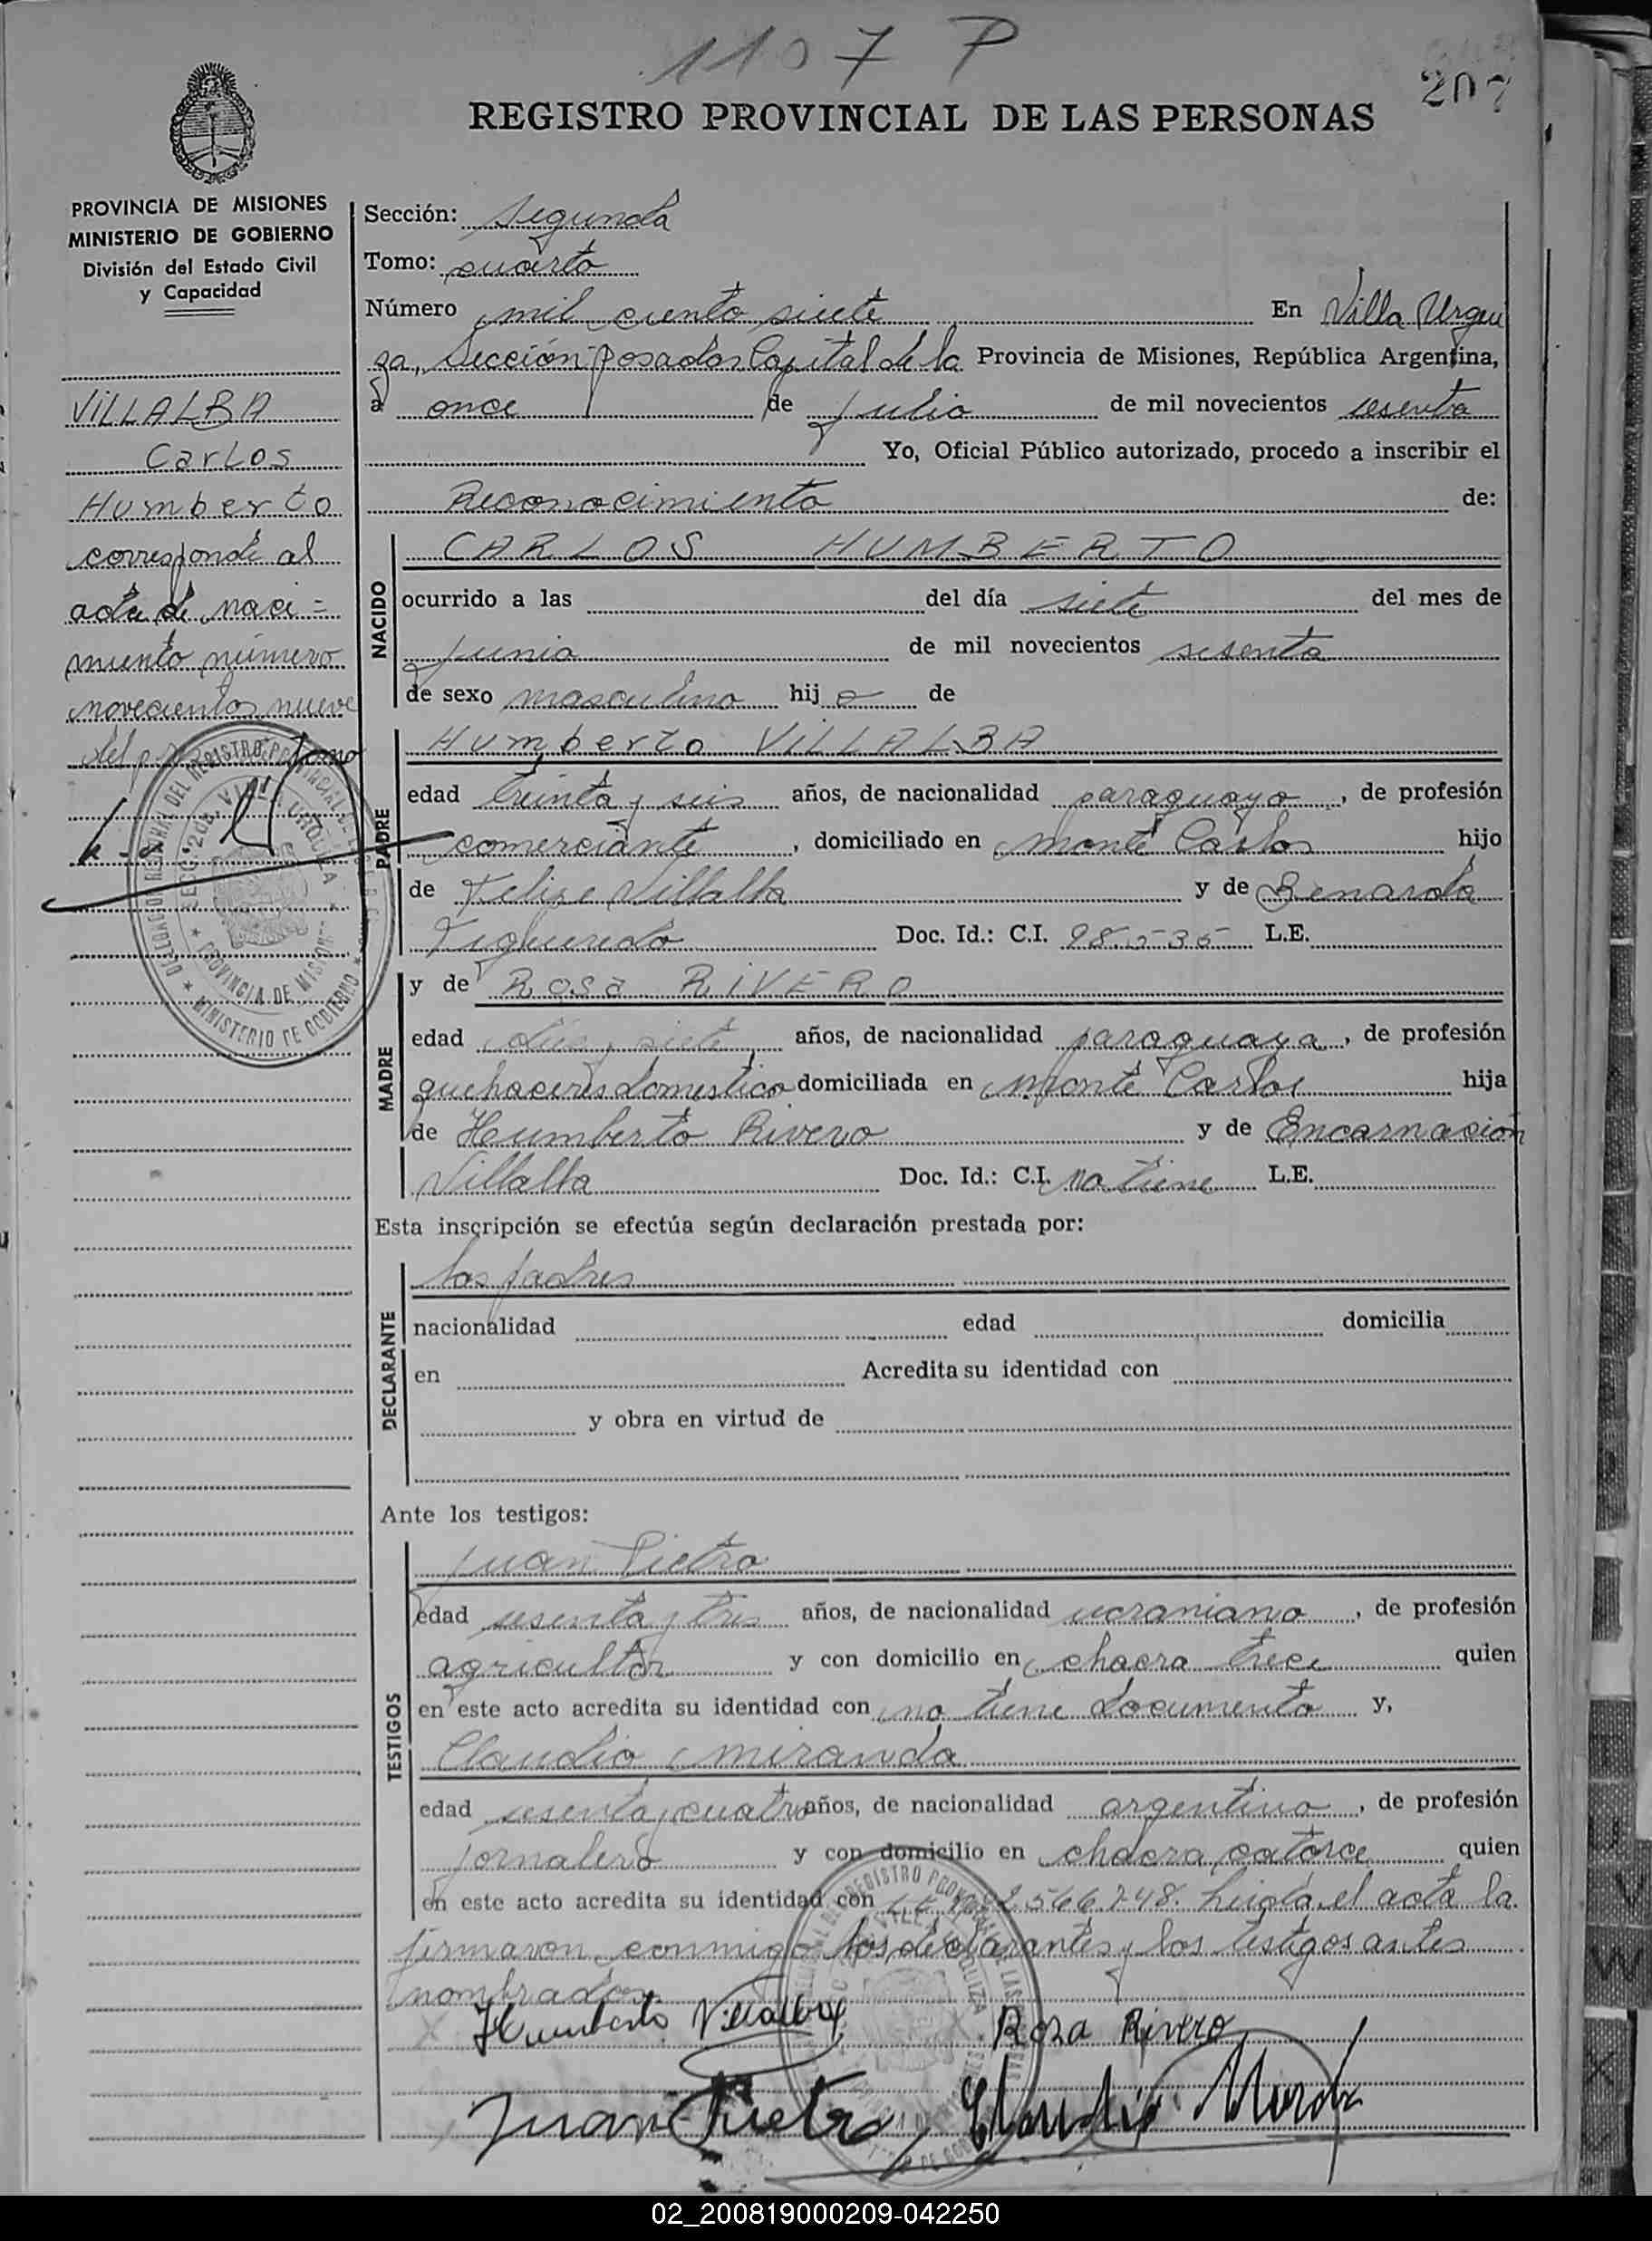 1107 P
207
REGISTRO PROVINCIAL DE LAS PERSONAS
PROVINCIA DE MISIONES
MINISTERIO DE GOBIERNO
División del Estado Civil
y Capacidad
VILLALBA
Carlos
Humberto
corresponde al
acta de naci=
miento número
novecientos nueve
del tomo
Sección: Segunda
Tomo: cuarto
Número mil ciento siete En Villa Urqui
za, Sección Posadas Capital de la Provincia de Misiones, República Argentina,
a once de julio de mil novecientos sesenta
Yo, Oficial Público autorizado, procedo a inscribir el
Reconocimiento de:
NACIDO
CARLOS HUMBERTO
ocurrido a las del día siete del mes de
junio de mil novecientos sesenta
de sexo masculino hijo de
PADRE
Humberto VILLALBA
edad treinta y seis años, de nacionalidad paraguayo, de profesión
comerciante, domiciliado en Monte Carlos hijo
de Felize Villalba y de Benarda
Figueredo Doc. Id.: C.I. 98.535 L.E.
MADRE
y de Rosa RIVERO
edad dies y siete años, de nacionalidad paraguaya, de profesión
quehaceres domestico domiciliada en Monte Carlos hija
de Humberto Rivero y de Encarnación
Villalba Doc. Id.: C.I. no tiene L.E.
Esta inscripción se efectúa según declaración prestada por:
DECLARANTE
los padres
nacionalidad edad domicilia
en Acredita su identidad con
y obra en virtud de
Ante los testigos:
TESTIGOS
Juan Pietro
edad sesenta y tres años, de nacionalidad ucraniano, de profesión
agricultor y con domicilio en chacra trece quien
en este acto acredita su identidad con no tiene documento y,
Claudio Miranda
edad sesenta y cuatro años, de nacionalidad argentino, de profesión
jornalero y con domicilio en chacra catorce quien
en este acto acredita su identidad con 2566748. el acta la
firmaron conmigo los declarantes y los testigos antes
nombrados
Humberto Villalba Rosa Rivero
Juan Pietro Claudio
02_200819000209-042250